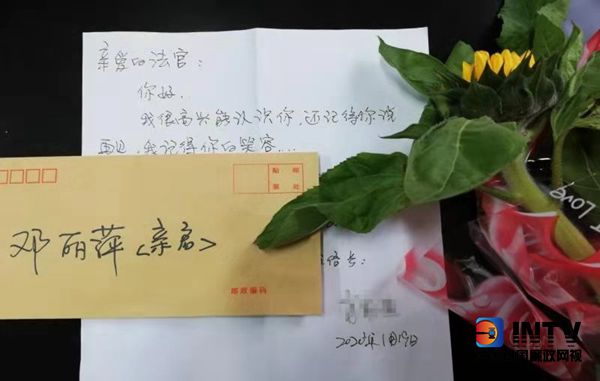 亲爱的法官：
你好．
我很高兴能认识你，还记得你说
再见，我记得你的笑容...
贴 邮
票 处
邓丽萍<亲启>
邮政编码
2020年1月19日
Love
INTV